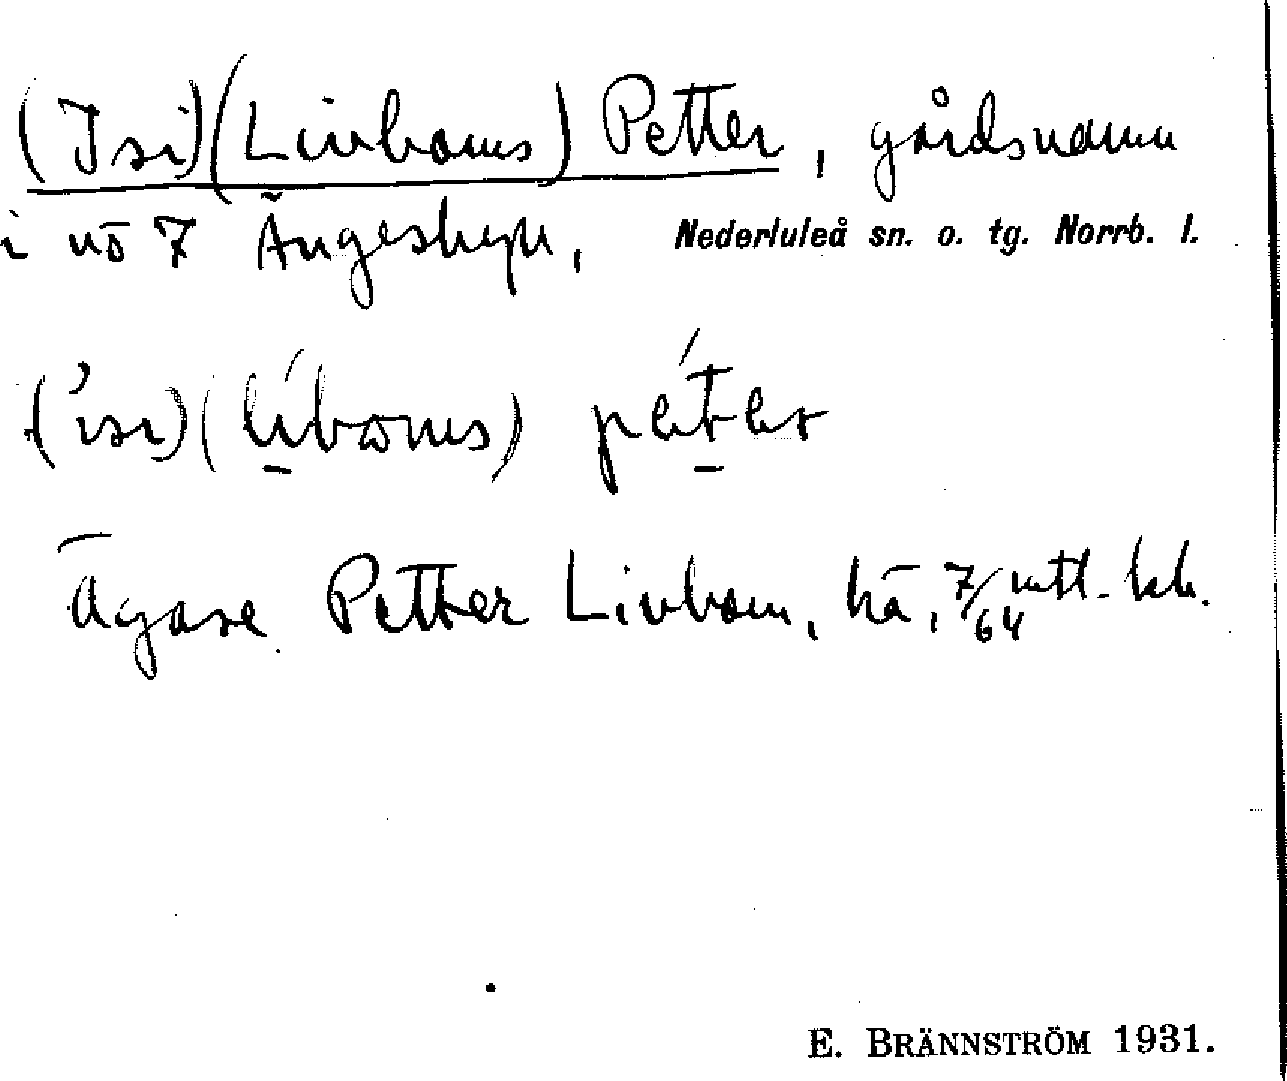 (Isi)(Livboms) Petter, gårdsnamn
i nō 7 Ängesbyn, Nederluleå sn. o. tg. Norrb. l.
('isi)(líboms) péter
Ägare Petter Livbom, hä, 7/64 mtl.
E. BRÄNNSTRÖM 1931.